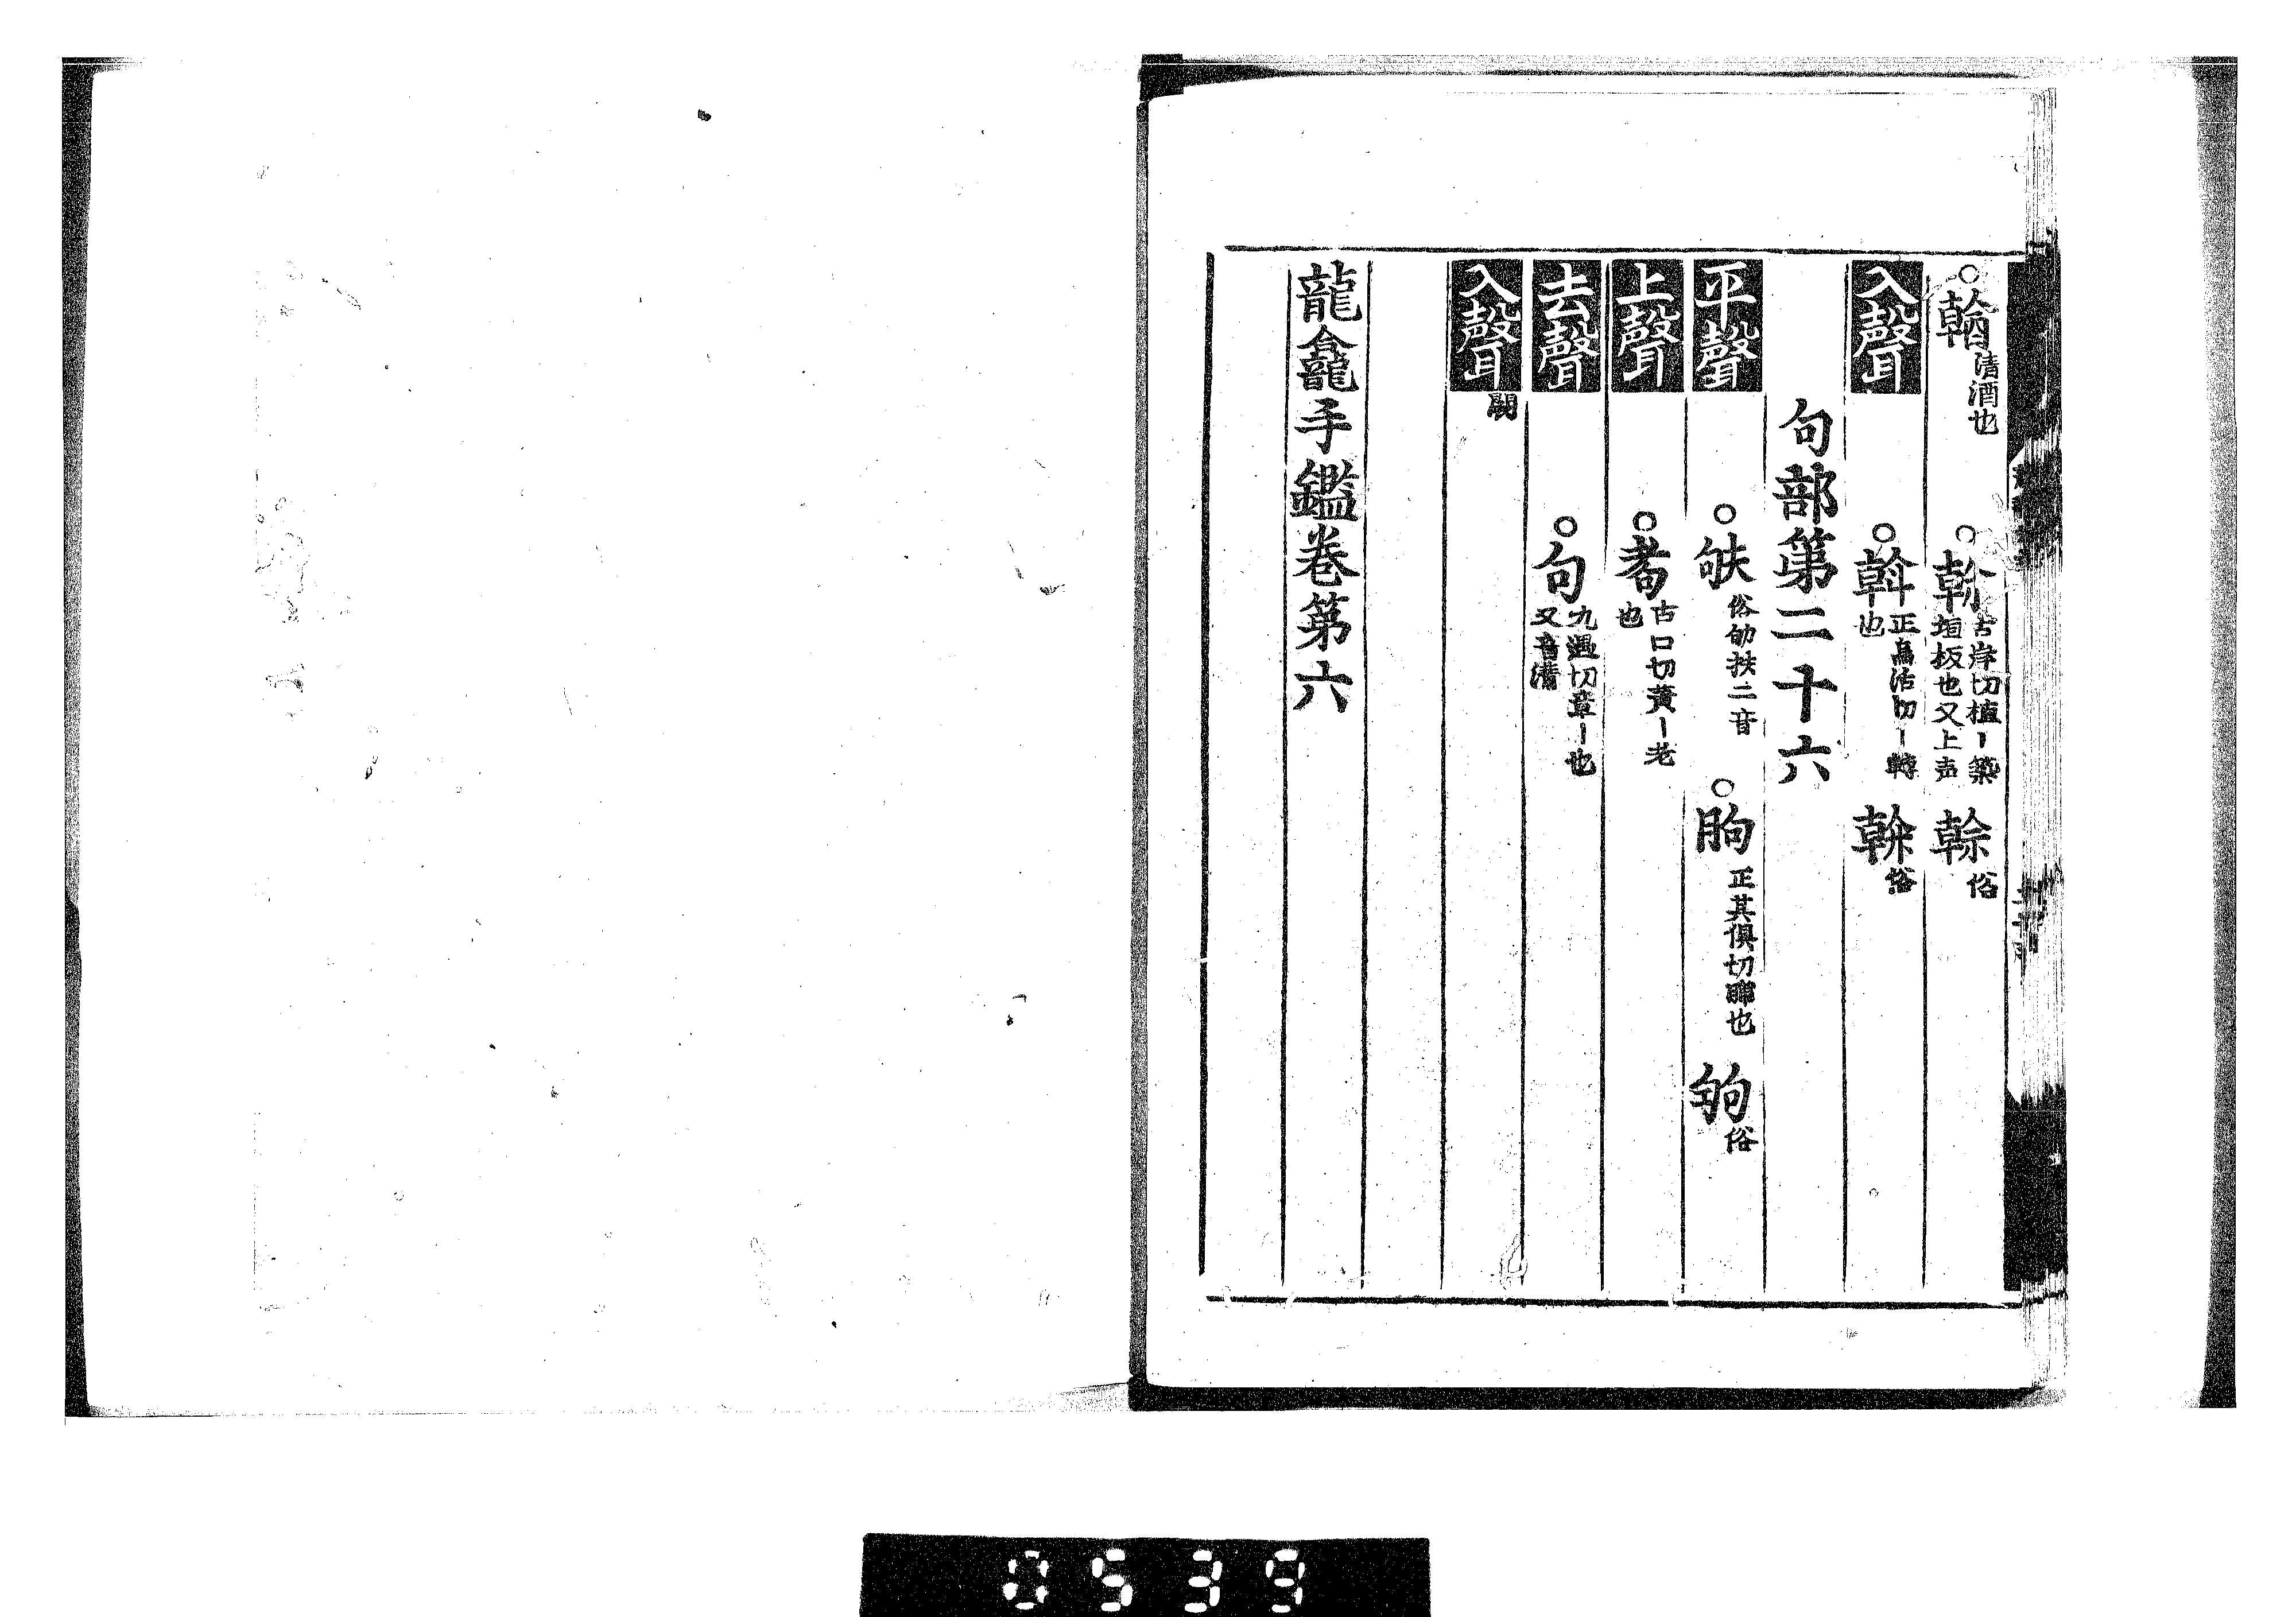 ○䣽清酒也 ○幹古岸切植丨築垣板也又上声 榦俗
入聲 ○斡正烏活切丨轉也 俗
句部第二十六
平聲 ○ 俗劬扶二音 ○朐正其俱切脯也 俗
上聲 ○耇古口切黃丨老也
去聲 ○句九遇切章丨也又音溝
入聲 闕
龍龕手鑑卷第六
0539